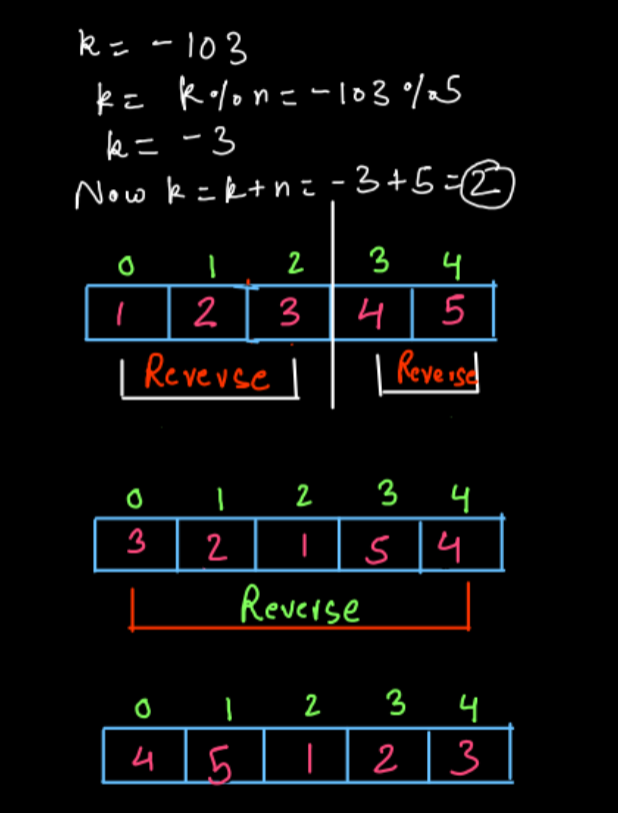 k = -103
k = k%n = -103%5
k = -3
Now k = k+n = -3+5 = 2
0 1 2 3 4
1 2 3 4 5
Reverse Reverse
0 1 2 3 4
3 2 1 5 4
Reverse
0 1 2 3 4
4 5 1 2 3